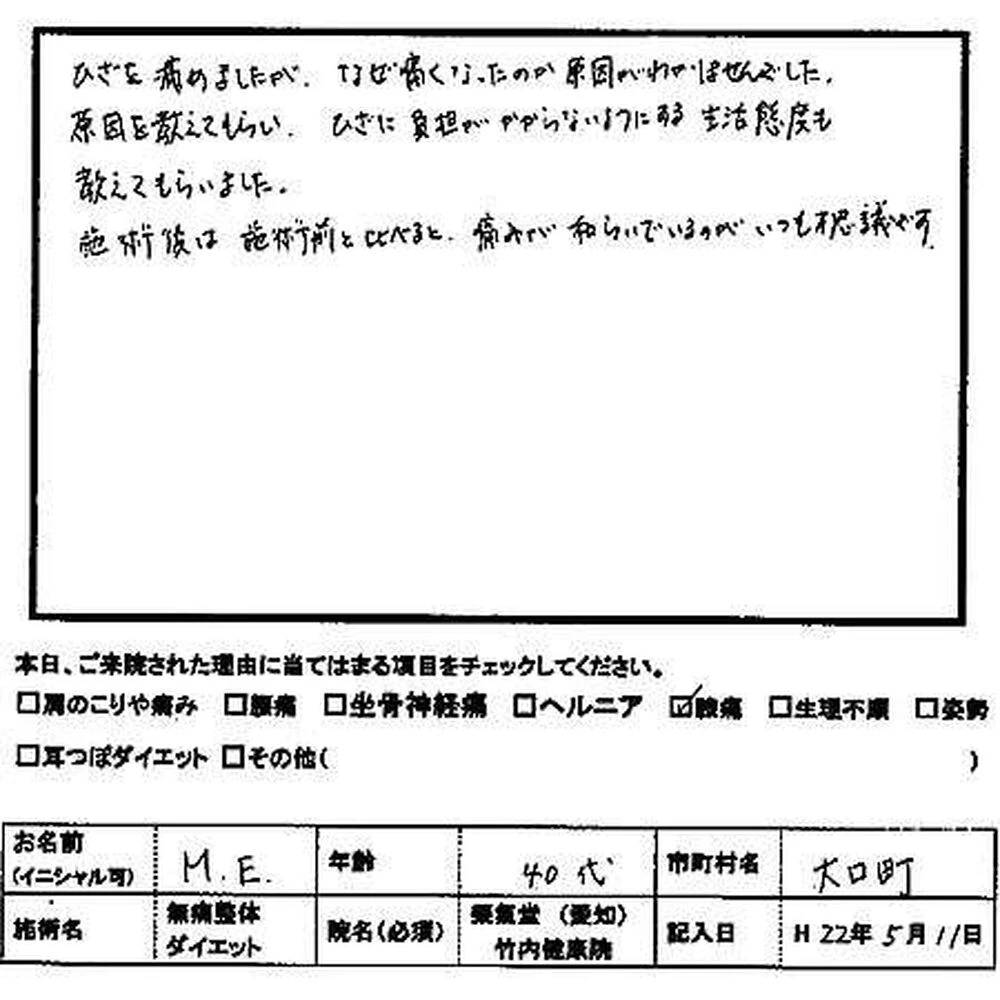 ひざを痛めましたが、なぜ痛くなったのか原因がわかりませんでした。
原因を教えてもらい、ひざに負担がかからないようにする生活態度も
教えてもらいました。
施術後は施術前と比べると、痛みが和らいでいるのがいつも不思議です。
本日、ご来院された理由に当てはまる項目をチェックしてください。
□肩のこりや痛み □腰痛 □坐骨神経痛 □ヘルニア ☑膝痛 □生理不順 □姿勢
□耳つぼダイエット □その他( )
お名前 (イニシャル可) M.E. 年齢 40代 市町村名 大口町
施術名 無痛整体 ダイエット 院名(必須) 薬氣堂 (愛知) 竹内健康院 記入日 H 22年 5月 11日